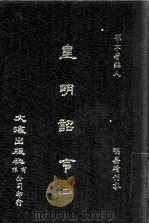 不著編人
皇明詔令
(二)
明嘉靖刊本
文海出版社有限公司印行